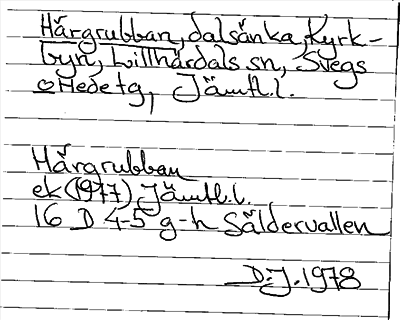 Hårgrubban, dalsänka, Kyrk-
byn, Lillhärdals sn, Svegs
o Hede tg, Jämtl.l.
Hårgrubban
ek (1977) Jämtl.l.
16 D 4-5 g-h Säldervallen
D.J. 1978